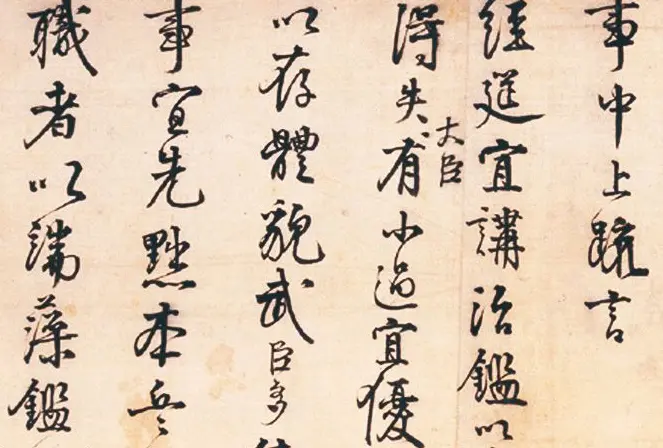 事中上疏言
經筵宜講治鑑以
得失大臣有小過宜優
以存體貌武臣多
事宜先黜本兵
職者以端藻鑑